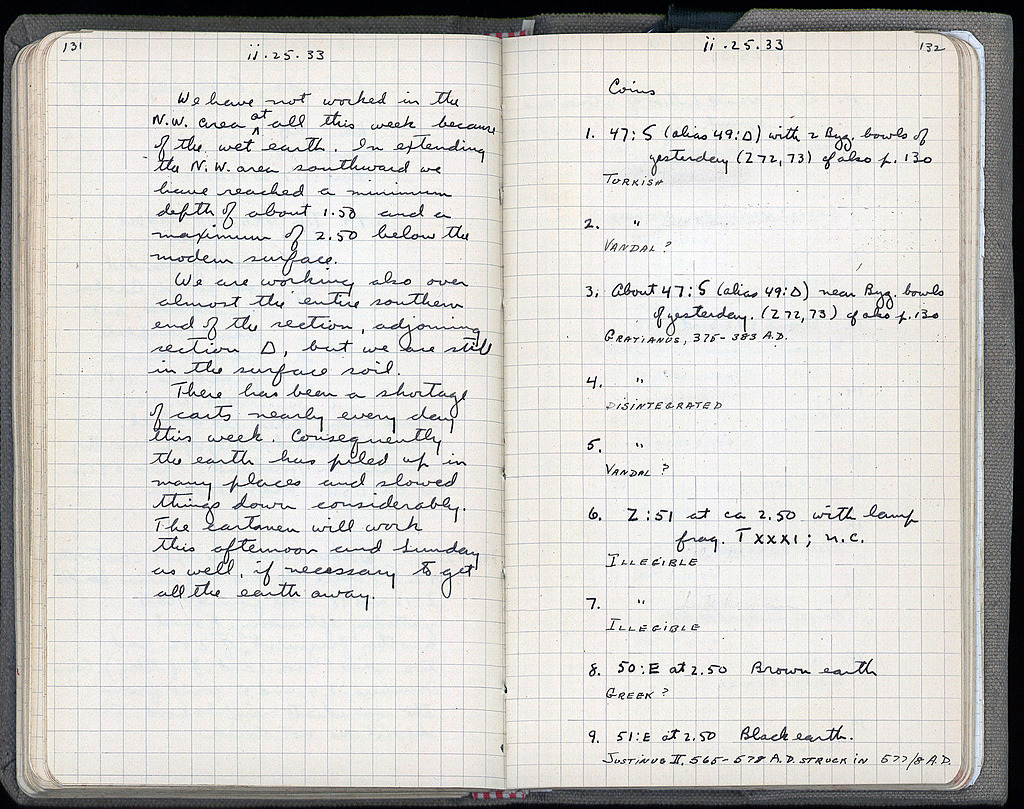 131
ii·25·33
We have not worked in the
N.W. area at all this week because
of the wet earth. In extending
the N.W. area southward we
have reached a minimum
depth of about 1.50 and a
maximum of 2.50 below the
modern surface.
We are working also over
almost the entire southern
end of the section, adjoining
section Δ, but we are still
in the surface soil.
There has been a shortage
of carts nearly every day
this week. Consequently
the earth has piled up in
many places and slowed
things down considerably.
The cartmen will work
this afternoon and Sunday
as well, if necessary to get
all the earth away.
ii·25·33
132
Coins
1. 47:S (alias 49:Δ) with 2 Byz. bowls of
yesterday (Z72, 73) cf also p. 130
TURKISH
2. "
VANDAL?
3. About 47:S (alias 49:Δ) near Byz. bowls
of yesterday. (Z72, 73) cf also p. 130
GRATIANUS, 375-383 A.D.
4. "
DISINTEGRATED
5. "
VANDAL?
6. Z:51 at ca 2.50 with lamp
frag. TXXXI; n.c.
ILLEGIBLE
7. "
ILLEGIBLE
8. 50:E at 2.50 Brown earth
GREEK?
9. 51:E at 2.50 Black earth.
JUSTINUS II, 565-578 A.D. STRUCK IN 577/8 A.D.